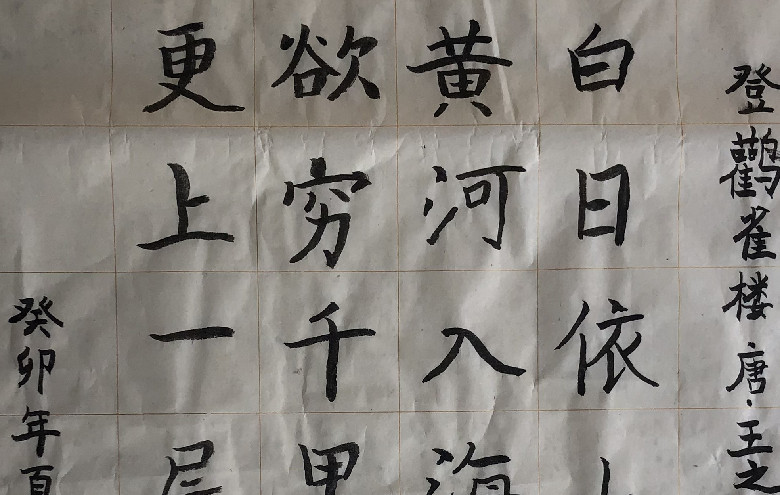 登鹳雀楼 唐·王之
白日依
黄河入海
欲穷千里
更上一
癸卯年